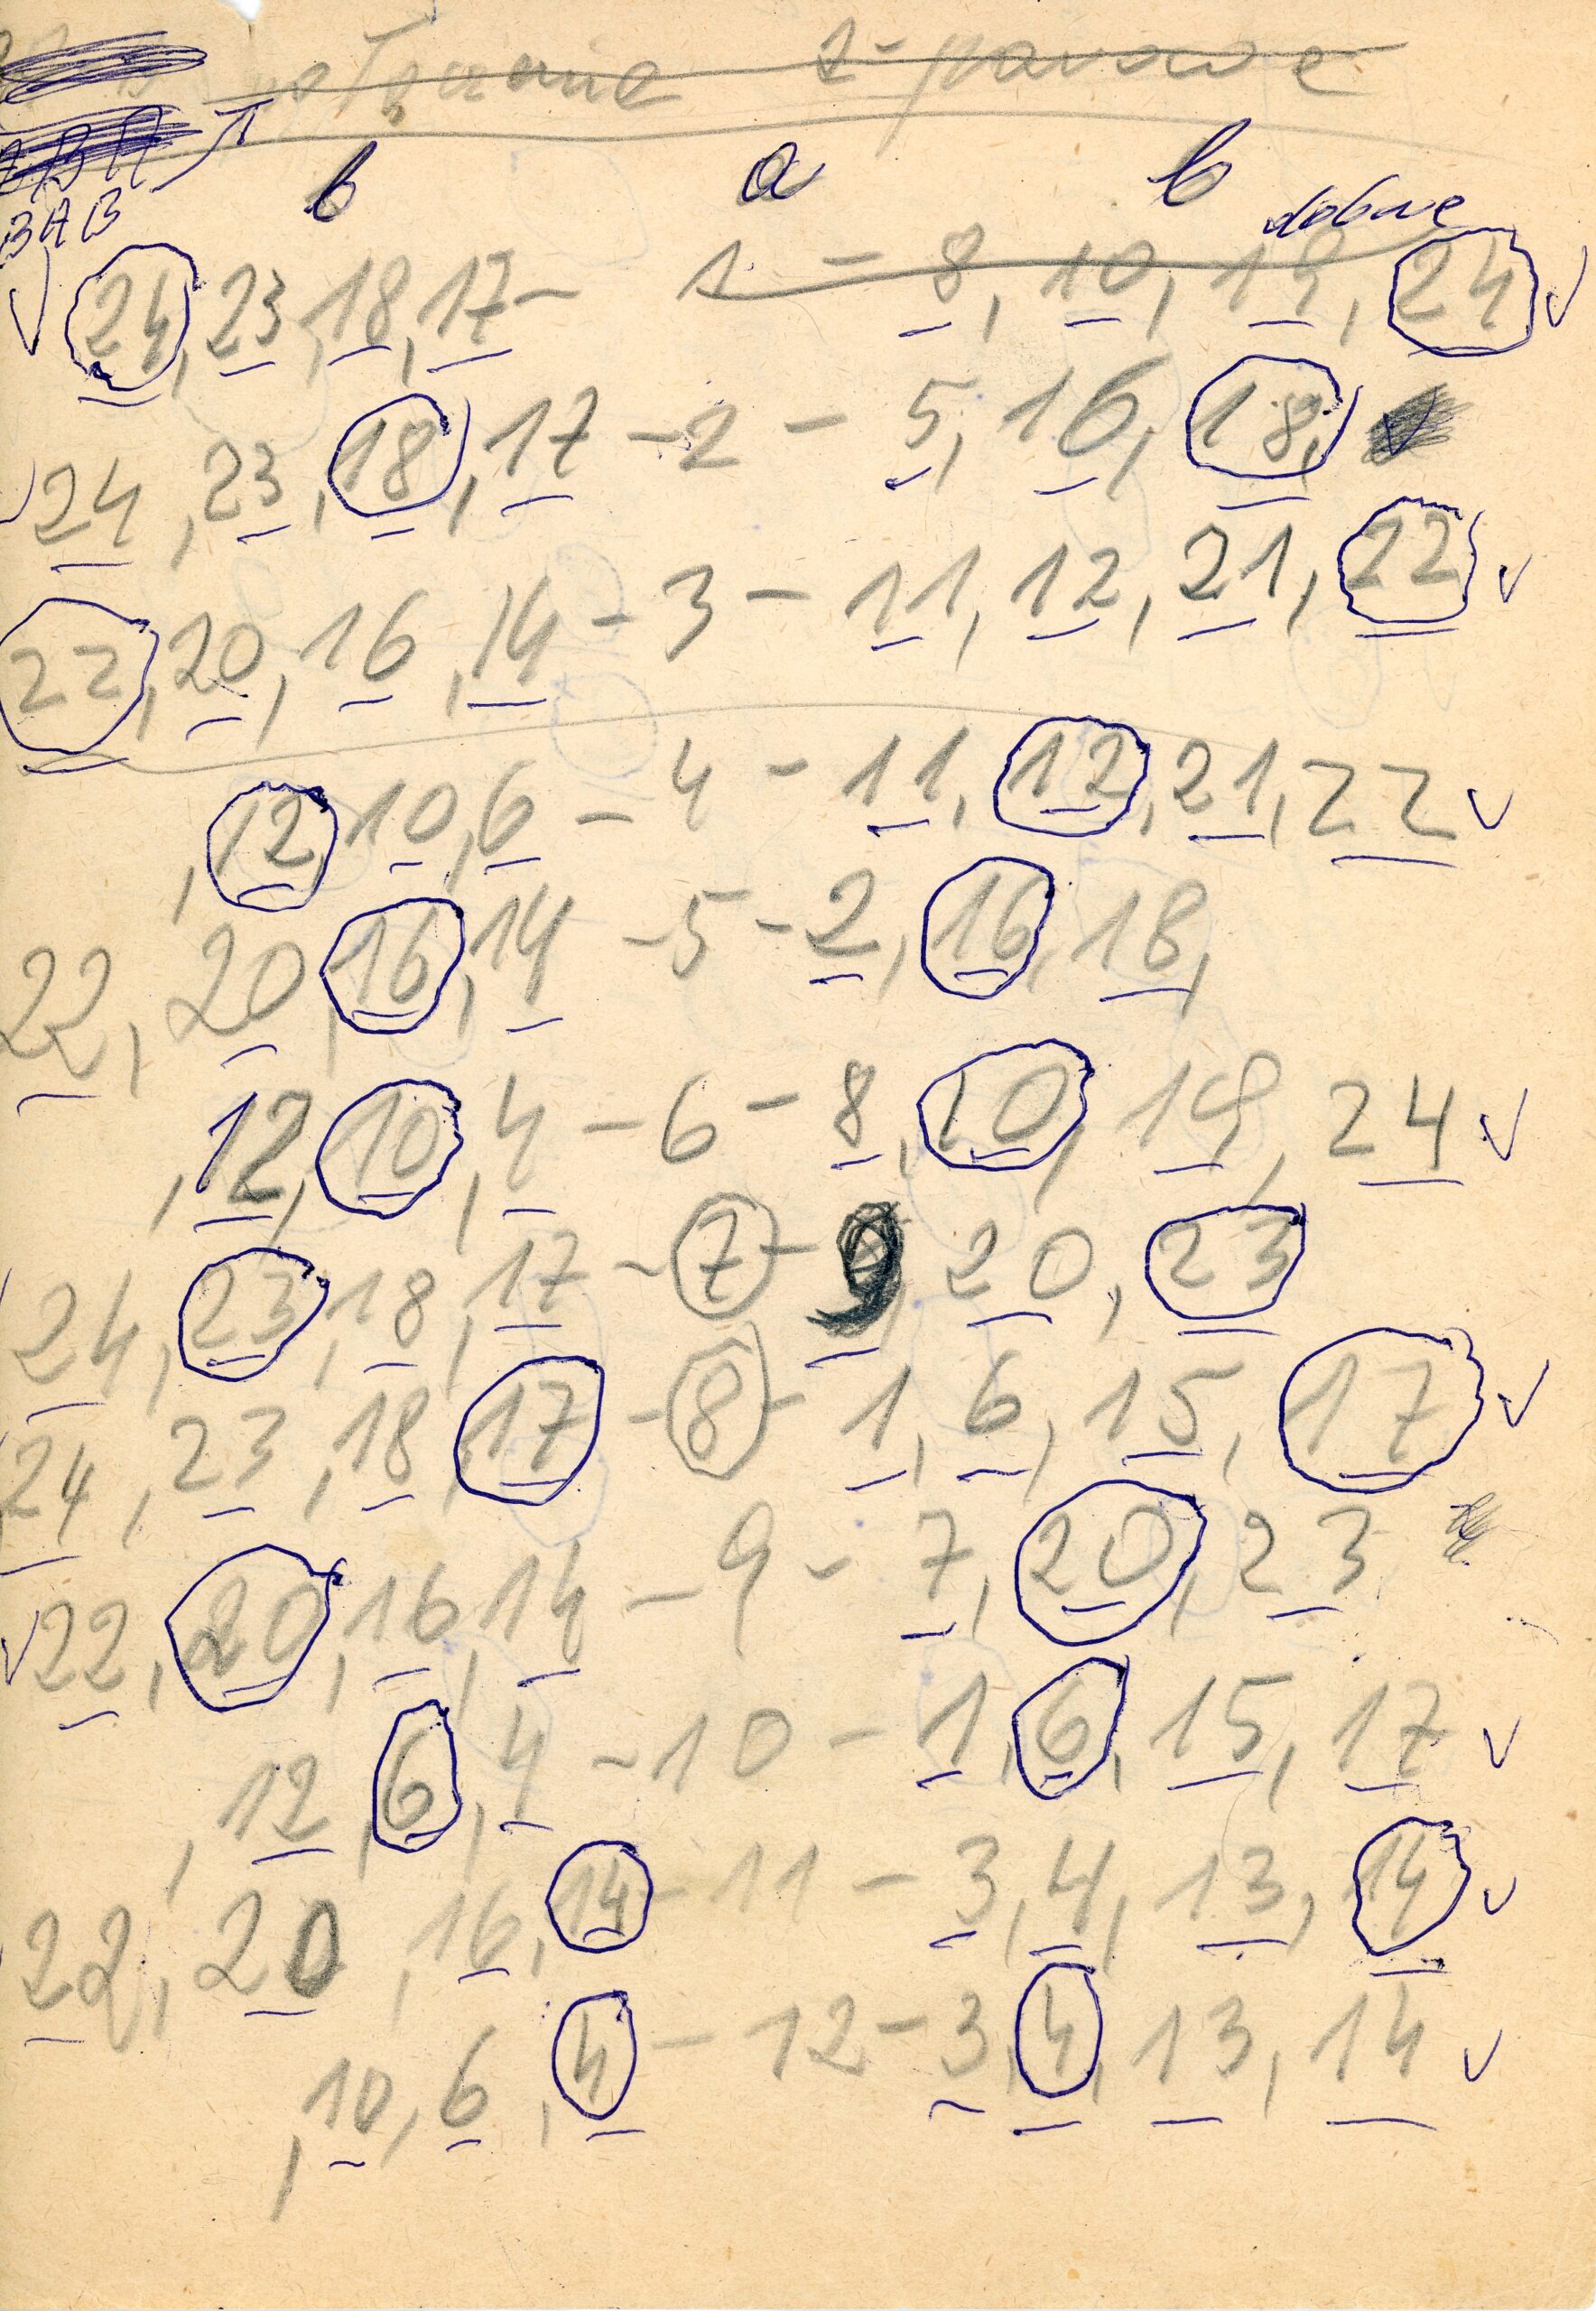 b a b
BAB dobre
24, 23, 18, 17 - 1 - 8, 10, 19, 24
24, 23, 18, 17 - 2 - 5, 16, 18,
22, 20, 16, 14 - 3 - 11, 12, 21, 22
, 12, 10, 6 - 4 - 11, 12, 21, 22
22, 20, 16, 14 - 5 - 2, 16, 18,
, 12, 10, 4 - 6 - 8, 10, 19, 24
24, 23, 18, 17 - 7 - 9, 20, 23
24, 23, 18, 17 - 8 - 1, 6, 15, 17
22, 20, 16, 14 - 9 - 7, 20, 23
, 12, 6, 4 - 10 - 1, 6, 15, 17
22, 20, 16, 14 - 11 - 3, 4, 13, 14
, 10, 6, 4 - 12 - 3, 4, 13, 14